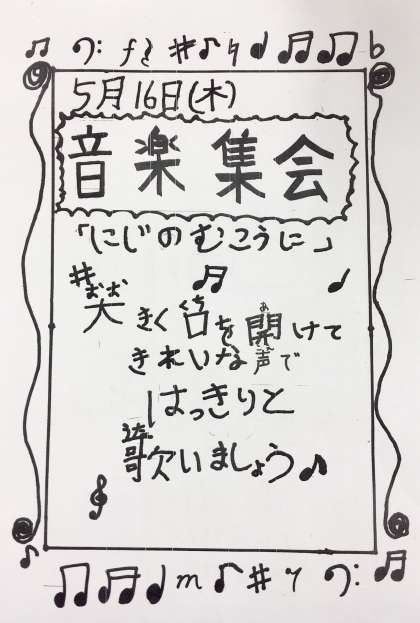 5月16日(木)
音楽集会
「にじのむこうに」
大きく口を開けて
きれいな声で
はっきりと
歌いましょう